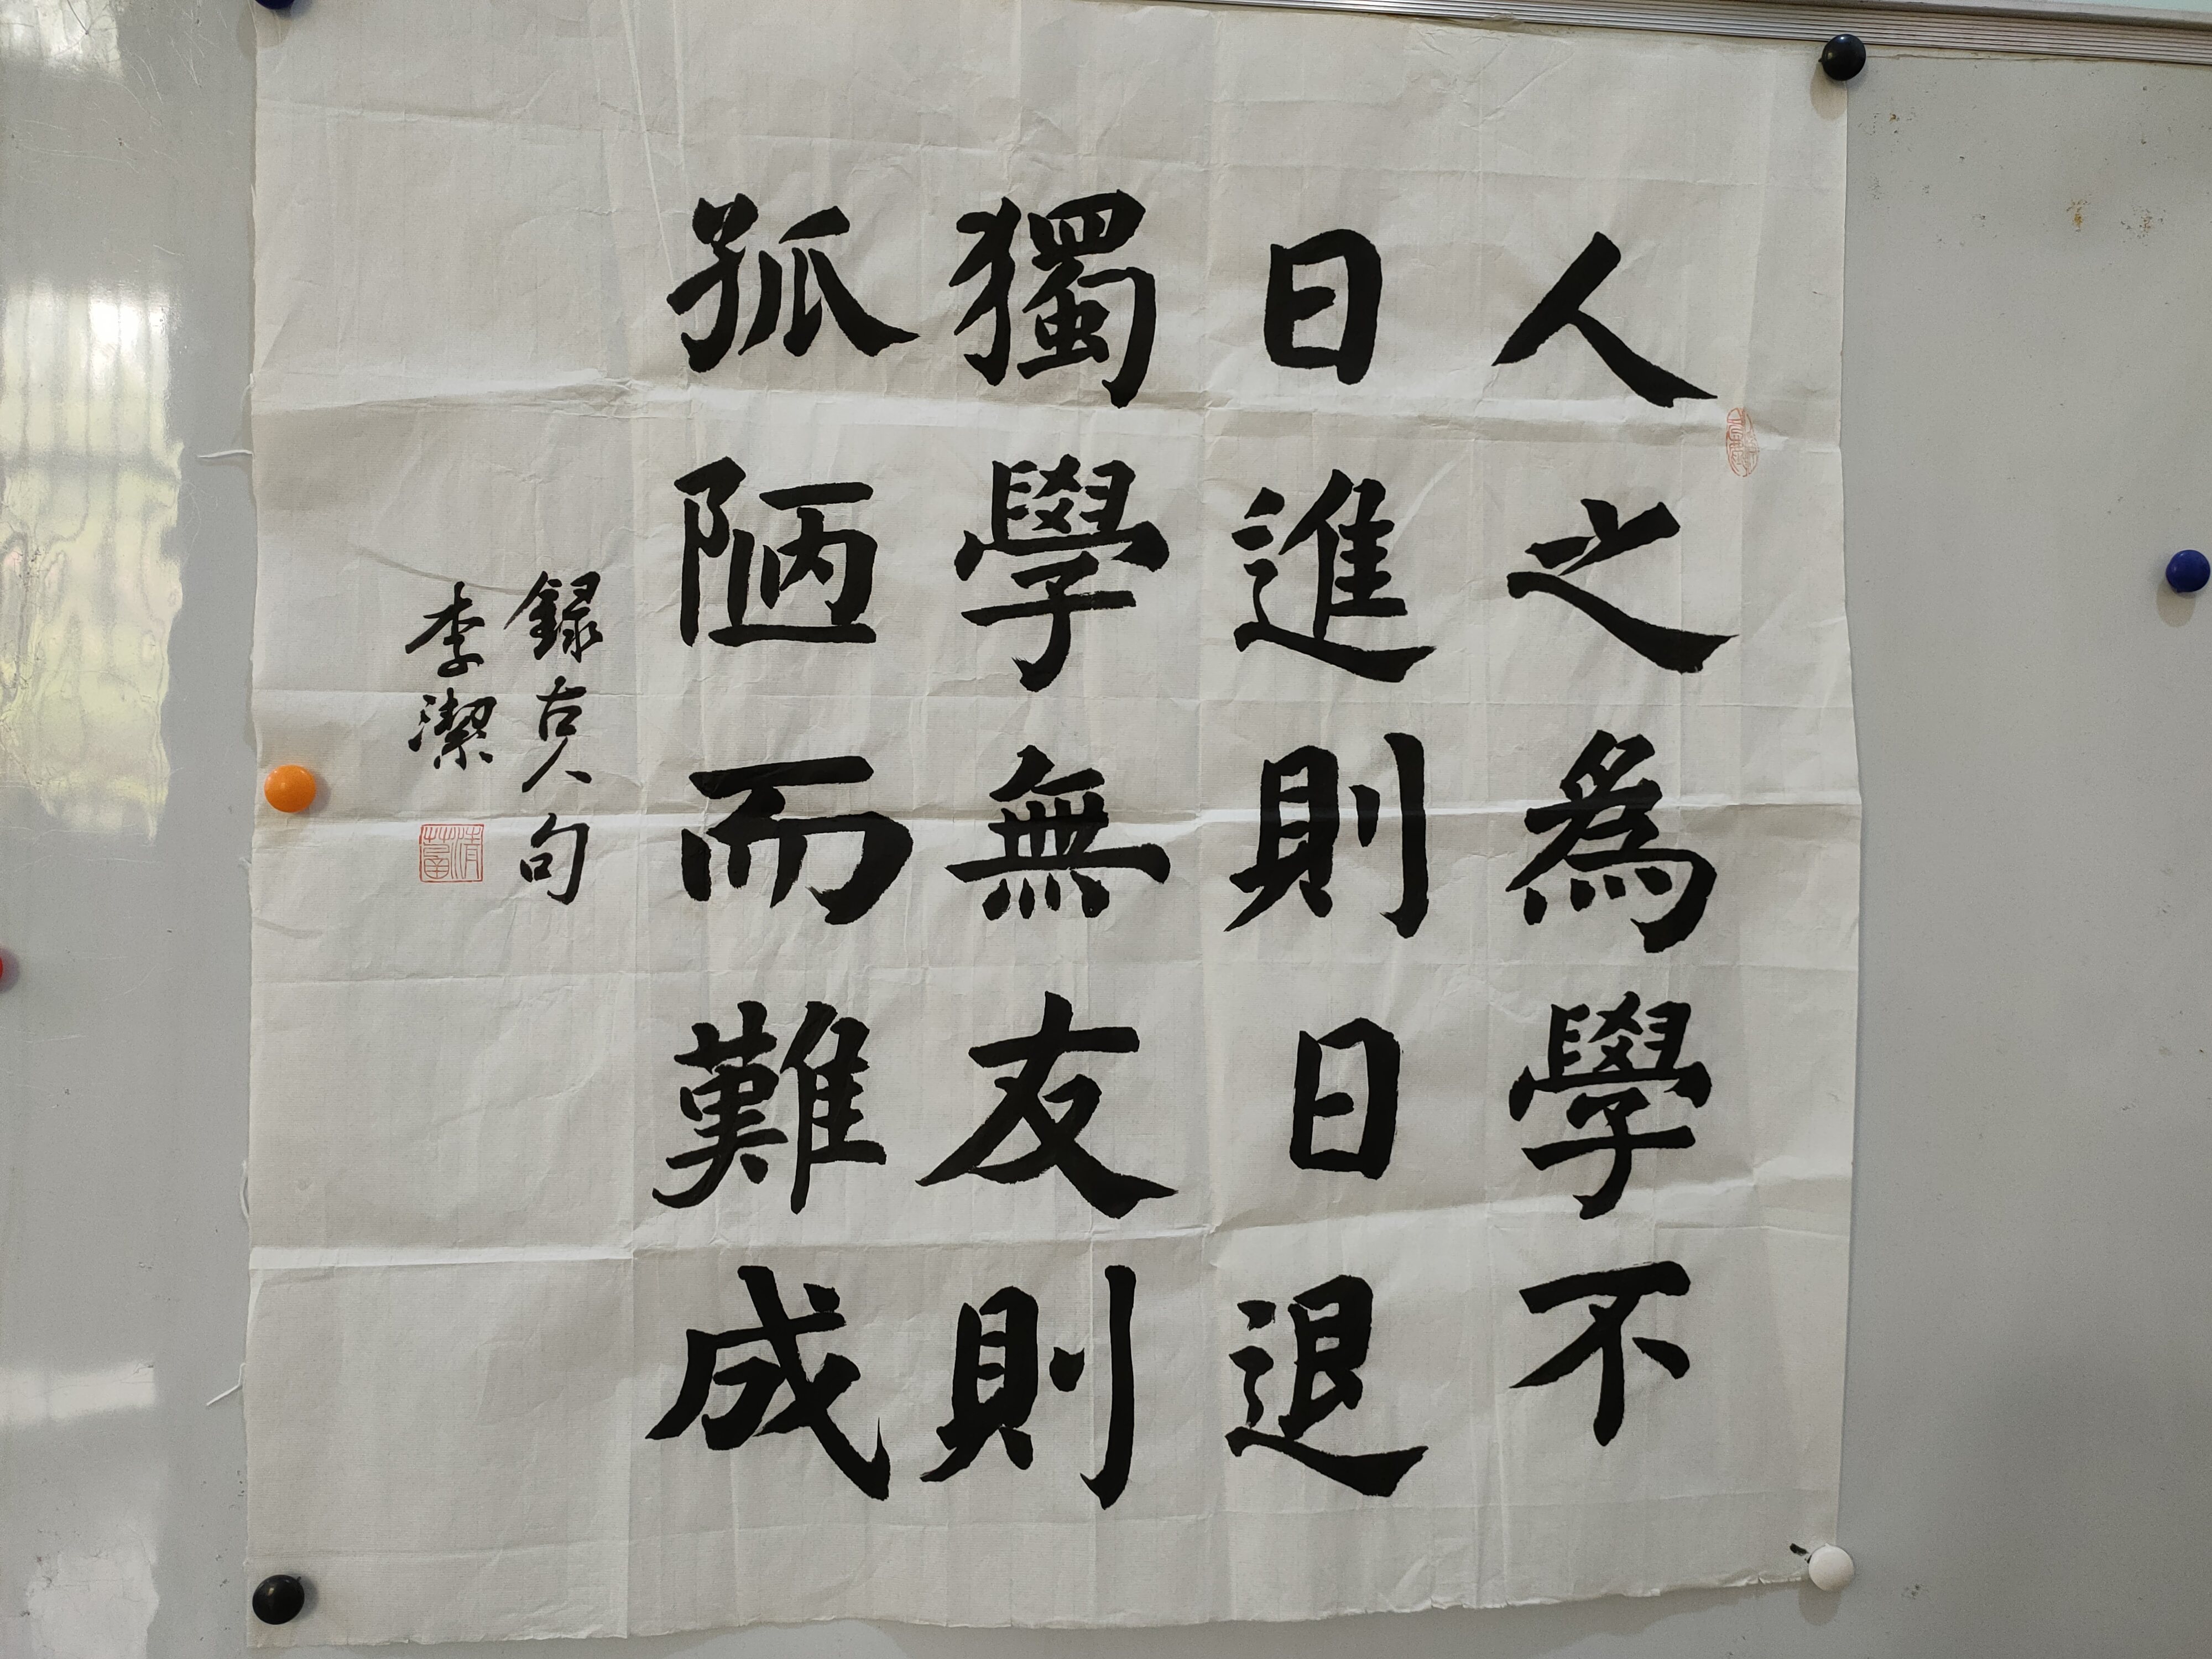 人之為學不
日進則日退
獨學無友則
孤陋而難成
録古人句
李潔